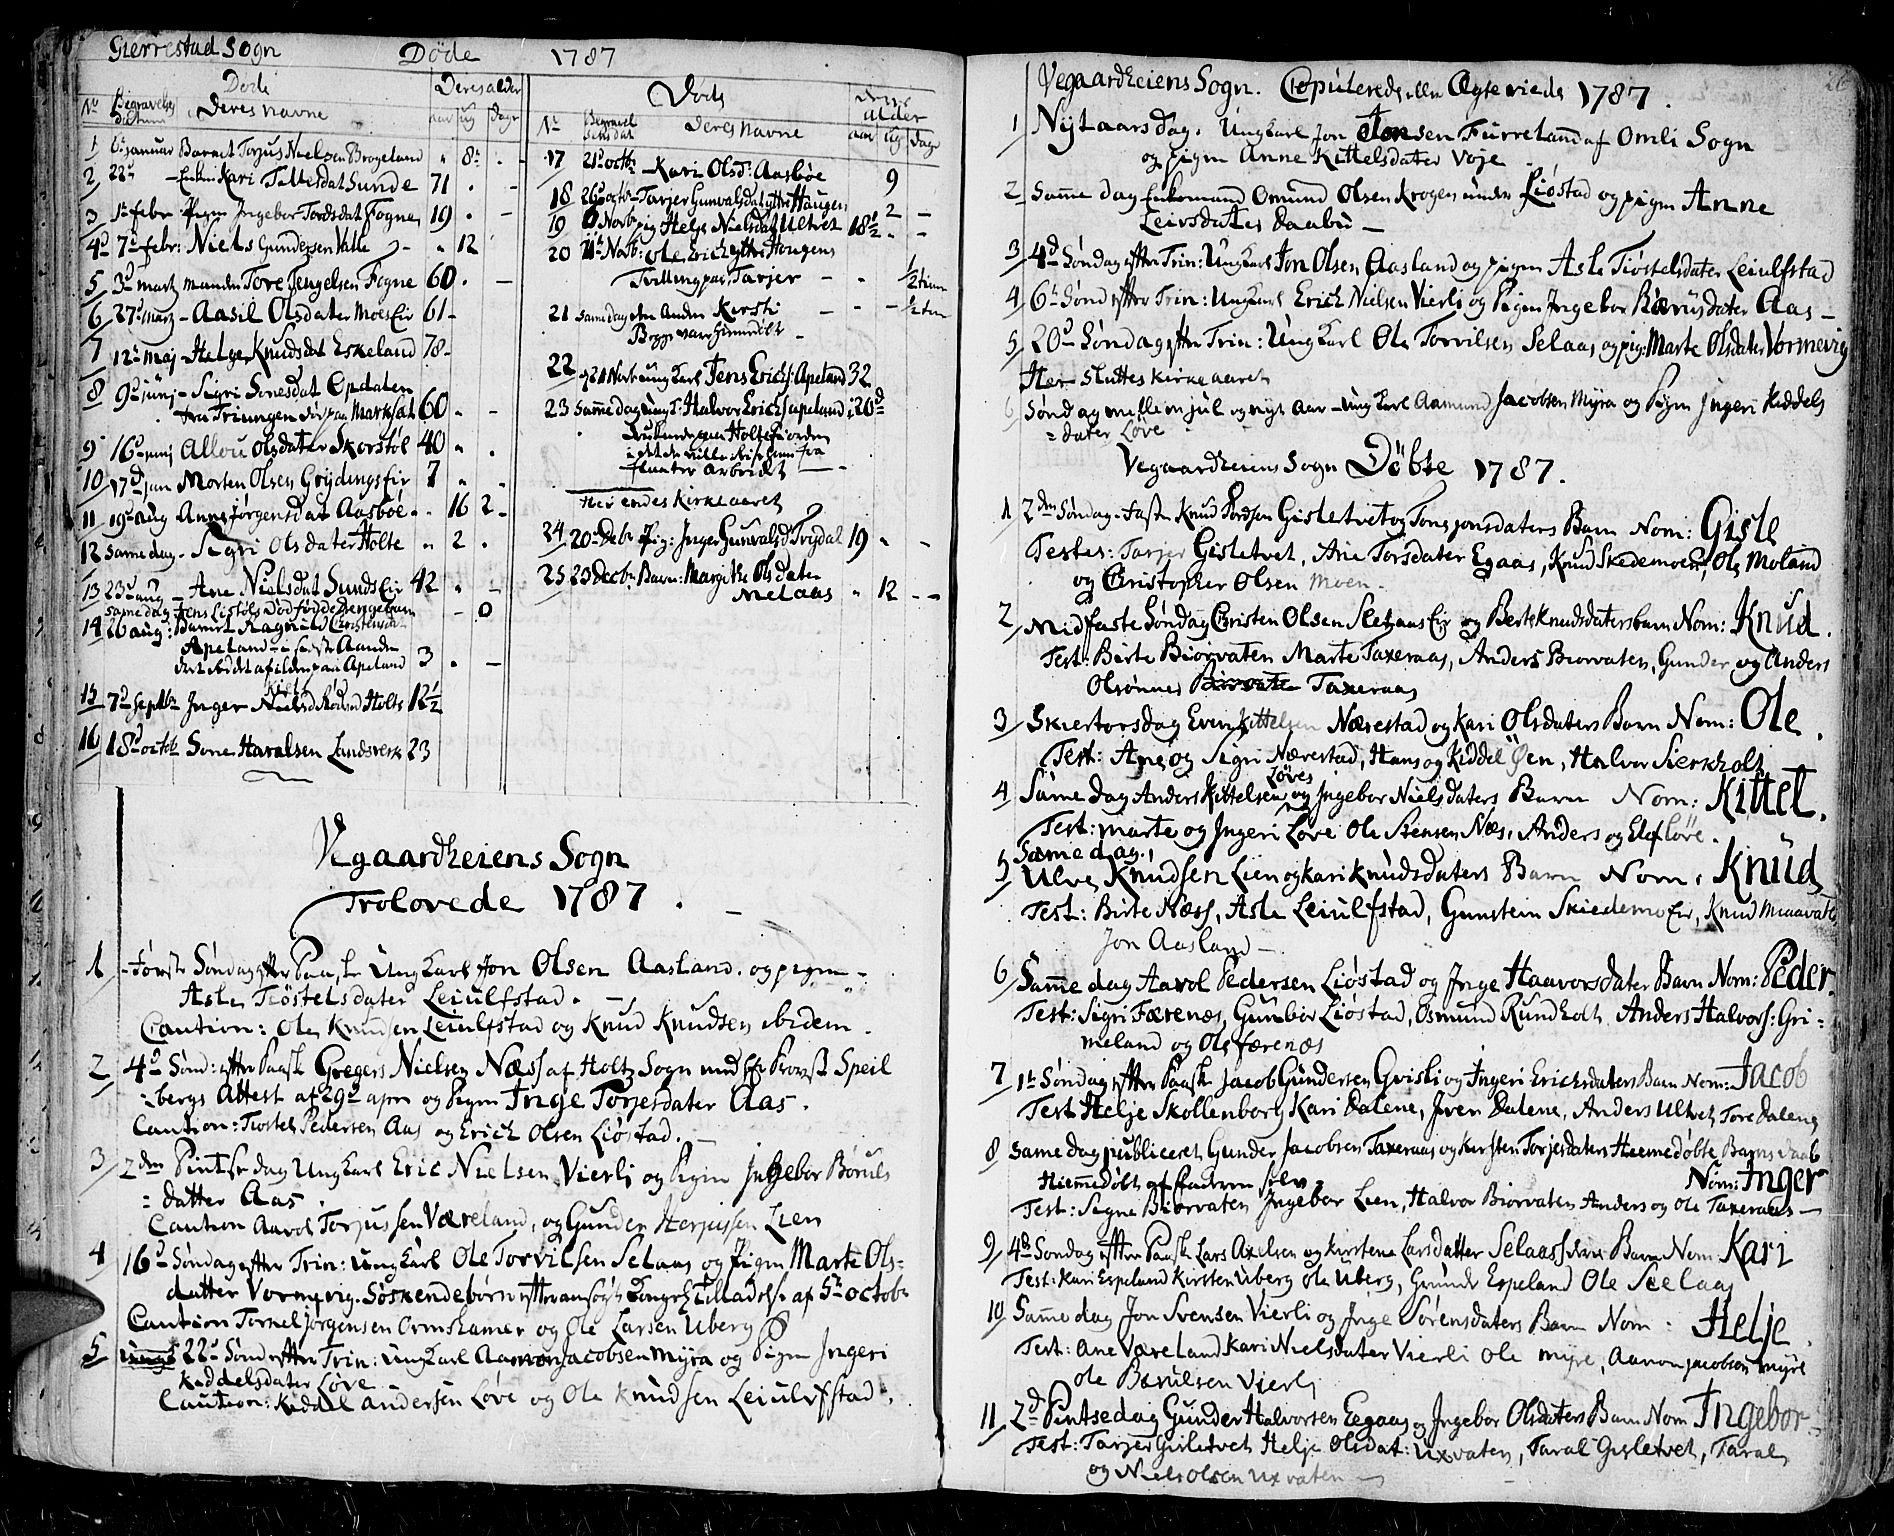 Gierrestad Sogn Døde 1787
Døde Deres alder
No Begravelses datum Deres navne aar ug dage
1 6t Januar Barnet Torjus Nielsen Brogeland " 8t - -
2 22d - Enken Kari Tellesdat Sunde 71 . -
3 1t febr Pigen Ingebor Tordsdat Fogne 19 . -
4d 7d febr: Niels Gundersen Valle - " 12
5 3d martz manden Tore Tengelsen Fogne 60 . -
6 27d martz - Aasil Olsdater Moes Eir 61 -
7 12t maj - Helge Knudsdat Eskeland 78 -
8 9d junj - Sigri Sonesdat Opdalen
60 - -
9 16d junj Allou Olsdater Skorstøl 40 " .
10 17d jun Morten Olsen Grydings Eir 7 " -
11 19d aug Anne Jørgensdat Aasbøe . . 16 2 -
12 Same dag - Sigri Olsdater Holte " 2 .
13 23d aug - Ane Nielsdat Sunds Eir 42 " -
Same dag Jens Listøls Dødfødde Drengebarn - 0
14 26 aug: Barnet Ragnild Christensd
Apeland
Apeland 3 . -
15 7d Septbr Inger Nielsd Holte 12½
16 18d octob Sone Haralsen Landsverk 23
Døde Deres alder
No Begravelsesdat Deres navne aar ug dage
17 21d octbr - Kari Olsd: Aasbøe 9
18 26d octbr - Tarjer Gunvalsdat ytre Haugen 2 -
19 Novbr pig Helje Nielsdat Ulvet 18½ - -
20 11t Novb: Ole Erichs ytre Hougens
Tvillingpar, Tarjer - - ½ time
21 Samedag den Anden Kersti - - ½ tim
Begge var hiemedøbt -
22 Novbr ungkarl Jens Erichs: Apeland 32
23 Samme dag ungk: Halvor Erichs Apeland 26d
Holtefiorden
fra
Arbeidet -
Her endes Kirkeaaret
24 20d Debr Pig: Inger Gunvalsd Trydal 19 " -
25 23 Decbr Barn: Margithe Olsdater
Melaas " 12 - -
Vegaardheiens Sogn
Trolovede 1787.
1 Første Søndag efter Paaske Ungkarl Jon Olsen Aasland. og pigen -
Asle Tiøstelsdater Leiulfstad. -
Caution: Ole Knudsen Leiulfstad og Knud Knudsen ibidem.
2 4d Sønd: efter Paaske Gregers Nielsen Næss af Holt Sogn med Hr Provst Speil
=bergs Attest af 29d apr og Pigen Inge Torjesdater Aas.
Caution: Tiostel Pedersen Aas og Erich Olsen Liøstad. -
3 2den Pintsedag Ungkarl Eric Nielsen Vierli og Pigen Ingebor Børuls
=datter Aas
Caution Aavol Torjussen Væreland, og Gunder Herjussen Lien
4 16d Søndag efter Trin: ungkarl Ole Torvilsen Selaas og Pigen Marte Ols=
datter Vormevig. Søskendebørn efter ansøgt Kongel Tilladelse af 5t octobr
Caution Torkel Jørgensen Ormskamer og Ole Larsen Uberg
5 22d Sønd efter Trin: ungkarl Aamon Jacobsen Myra og Pigen Ingeri
Keddelsdater Løve
Caution: Keddel Andersen Løve og Ole Knudsen Leiulvfstad.
Vegaardheiens Sogn. Copulerede eller Ægteviede 1787.
1 Nytaarsdag. Ungkarl Jon Jonsen Furreland af Omli Sogn
og pigen Anne Kittelsdater Voje -
2 Samme dag Enkemand Omund Olsen Krogen under Liøstad og pigen Anne
Leivsdater Daabu -
3 4d Søndag efter Trin: Ungkarl Jon Olsen Aasland og pigen Asle Tiøstelsdater Leiulfstad
4 6t Sønd efter Trin: Ungkarl Erich Nielsen Vierli og Pigen Ingebor Børulsdater Aas -
5 20d Søndag efter Trin: Ungkarl Ole Torvilsen Selaas og pig: Marte Olsdater Vormevig
Her Sluttes Kirkeaaret
6 Sønd ag mellem jul og nyt Aar - ungkarl Aamund Jacobsen Myra og Pigen Ingeri Kiddels
=dater Løve
Vegaardheiens Sogn Døbte 1787.
1 2den Søndag i Faste Knud Tordsen Gisletvet og Tone Jonsdaters Barn Nom: Gisle
Testes: Tarjer Gisletvet, Ane Torsdater Egaas, Knud Skedemoen, Ole Moland
og Christopher Olsen Moen.
2 Midfaste Søndag Christen Olsen Selaas Eir og Berte Knudsdaters barn Nom: Knud.
Test: Birte Biorvaten Marte Taxeraas, Anders Biorvaten, Gunder og Anders
Olsønner Taxeraas
3 Skiertorsdag Even Kittelsen Nærestad og Kari Olsdaters Barn Nom: Ole.
Test: Ane og Sigri Nærestad, Hans og Kiddel Øen, Halvor Sierkholt
4 Same dag Anders Kittelsen Løves og Ingebor Nielsdaters Barn Nom: Kittel.
Test: Marte og Ingeri Løve Ole Stensen Næs, Anders og Elef Løve.
5 Same dag.
Ulve Knudsen Lien og Kari Knudsdaters Barn Nom: Knud
Test: Birte Næss, Asle Leiulfstad, Gunstein Skiedemo Eir, Knud Miaavatn
Jon Aasland -
6 Samme dag Aavol Pedersen Liøstad og Inge Haavorsdater Barn Nom: Peder.
Test: Sigri Færenæs, Gunbor Liøstad, Osmund Rundholt, Anders Halvors: Gri=
meland og Ole færenæs
7 1t Søndag efter Paaske Jacob Gundersen Gvisli og Ingeri Erichsdaters Barn Nom: Jacob
Test Helje Skollenborg Kari Dalene, Iven Dalene, Anders Ulvet, Tore Dalene
8 Samedag publiceret Gunder Jacobsen Taxeraas og Kirsten Torjesdaters Hiemedøbte Barns daab
Hiemedøbt af faderen selv. Nom: Inger
Test: Signe Biorvaten Ingebor Lien, Halvor Biorvaten Anders og Ole Taxeraas -
9 4d Søndag efter Paaske Lars Axelsen og Kirstene Larsdatter Selaas Barn Nom Kari
Test: Kari Espeland Kirsten Uberg Ole Uberg, Gunder Espeland Ole Seelaas
10 Samme dag Jon Svensen Vierli og Inge Sørensdaters Barn Nom: Helje.
Test: Ane Væreland Kari Nielsdater Vierli Ole Myre, Aamon Jacobsen Myre
Ole Børulsen Vierli
11 2d Pintsedag Gunder Halvorsen Eegaas og Ingebor Olsdaters Barn Nom Ingebor -
Test: Tarjer Gisletvet Helje Olsdat: Uxvaten, Taral Gisletvet, Taral
og Niels Olsen Uxvaten -